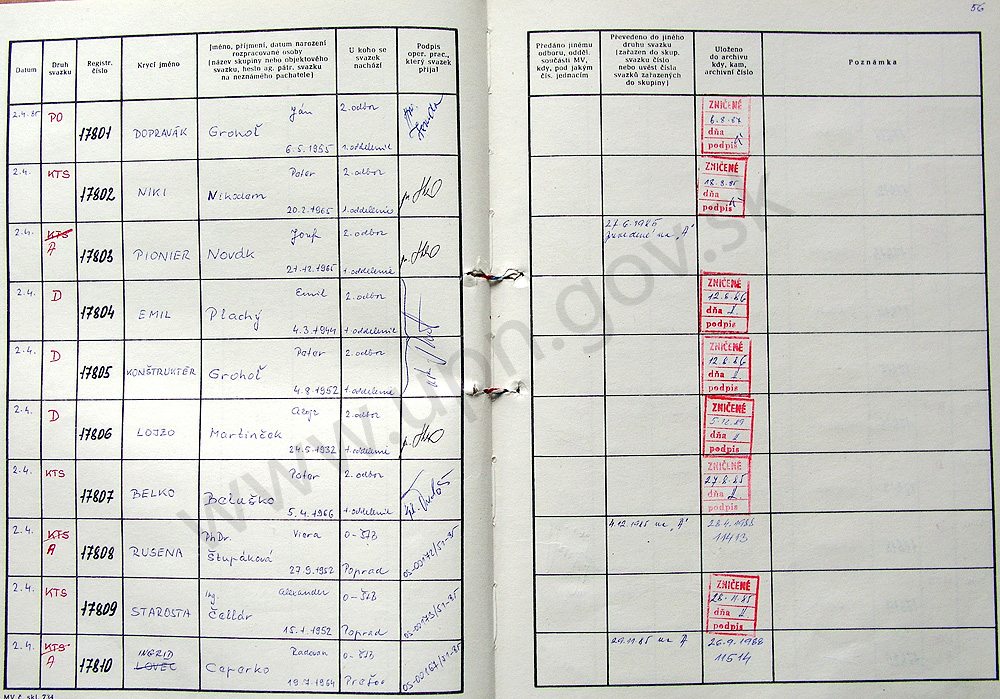 56
Datum
Druh svazku
Registr. číslo
Krycí jméno
Jméno, příjmení, datum narození rozpracované osoby (název skupiny nebo objektového svazku, heslo ag. pátr. svazku na neznámého pachatele)
U koho se svazek nachází
Podpis oper. prac., který svazek přijal
Předáno jinému odboru, odděl. součásti MV, kdy, pod jakým čís. jednacím
Převedeno do jiného druhu svazku (zařazen do skup. svazku číslo nebo uvést čísla svazků zařazených do skupiny)
Uloženo do archivu kdy, kam, archivní číslo
Poznámka
2.4.85 PO 17801 DOPRAVÁK Ján Grohoľ 6.5.1955 2. odbor 1. oddelenie
ZNIČENÉ 6.8.87 dňa podpis
2.4. KTS 17802 NIKI Peter Nikodem 20.2.1965 2. odbor 1. oddelenie
ZNIČENÉ 18.8.85 dňa podpis
2.4. KTS A 17803 PIONIER Jozef Novák 21.12.1965 2. odbor 1. oddelenie
27.6.1985 prevedené na "A"
2.4. D 17804 EMIL Emil Plachý 4.3.1944 2. odbor 1. oddelenie
ZNIČENÉ 12.8.86 dňa podpis
2.4. D 17805 KONŠTRUKTÉR Peter Grohoľ 4.8.1952 2. odbor 1. oddelenie
ZNIČENÉ 12.8.86 dňa podpis
2.4. D 17806 LOJZO Alojz Martinček 24.5.1932 2. odbor 1. oddelenie
ZNIČENÉ 5.12.89 dňa podpis
2.4. KTS 17807 BELKO Peter Beluško 5.4.1966 2. odbor 1. oddelenie
ZNIČENÉ 27.8.85 dňa podpis
2.4. KTS A 17808 RUSENA PhDr. Viera Štupáková 27.9.1952 O-ŠtB Poprad 05-00172/51-85
4.12.1985 na "A"
28.4.1988 11413
2.4. KTS 17809 STAROSTA Ing. Alexander Čellár 15.1.1952 O-ŠtB Poprad 05-00173/51-85
ZNIČENÉ 28.11.85 dňa podpis
2.4. KTS A 17810 INGRID LOVEC Radovan Ceperko 19.7.1964 O-ŠtB Prešov 05-00167/31-85
29.11.85 na "A"
26.9.1988 11514
MV č. skl. 731
www.upn.gov.sk